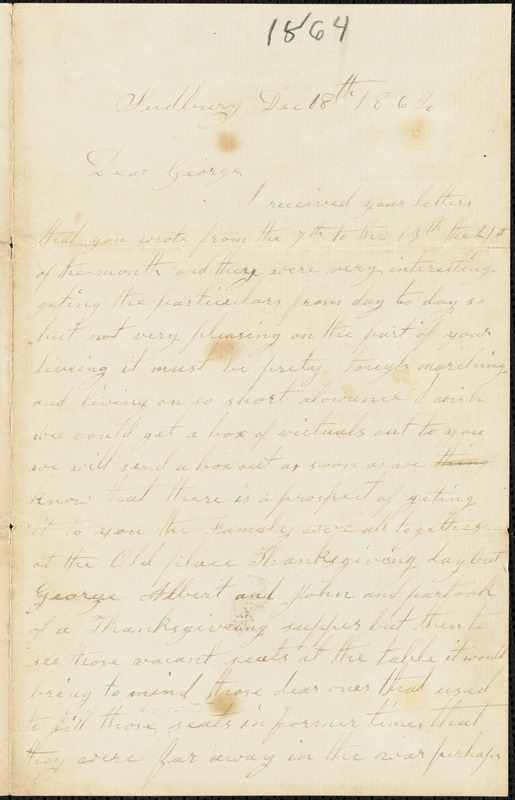 1864
Sudbury Dec 18th 1864
Dear George
I received your letters
that you wrote from the 7th to the 13th the 21st
of the month and they were very interesting
geting the particulars from day to day so
but not very pleasing on the part of your
liveing it must be prety tough marching
and living on so short alowance I wish
we could get a box of victuals out to you
we will send a box out as soon as we thing
know that there is a prospect of geting
it to you the Family were all together
at the Old place Thanksgiving day but
George Albert and John and partook
of a Thanksgiveing supper but then to
see those vacant seats at the table it would
bring to mind those dear ones that used
to fill those seats in former times that
they were far away in the war perhaps